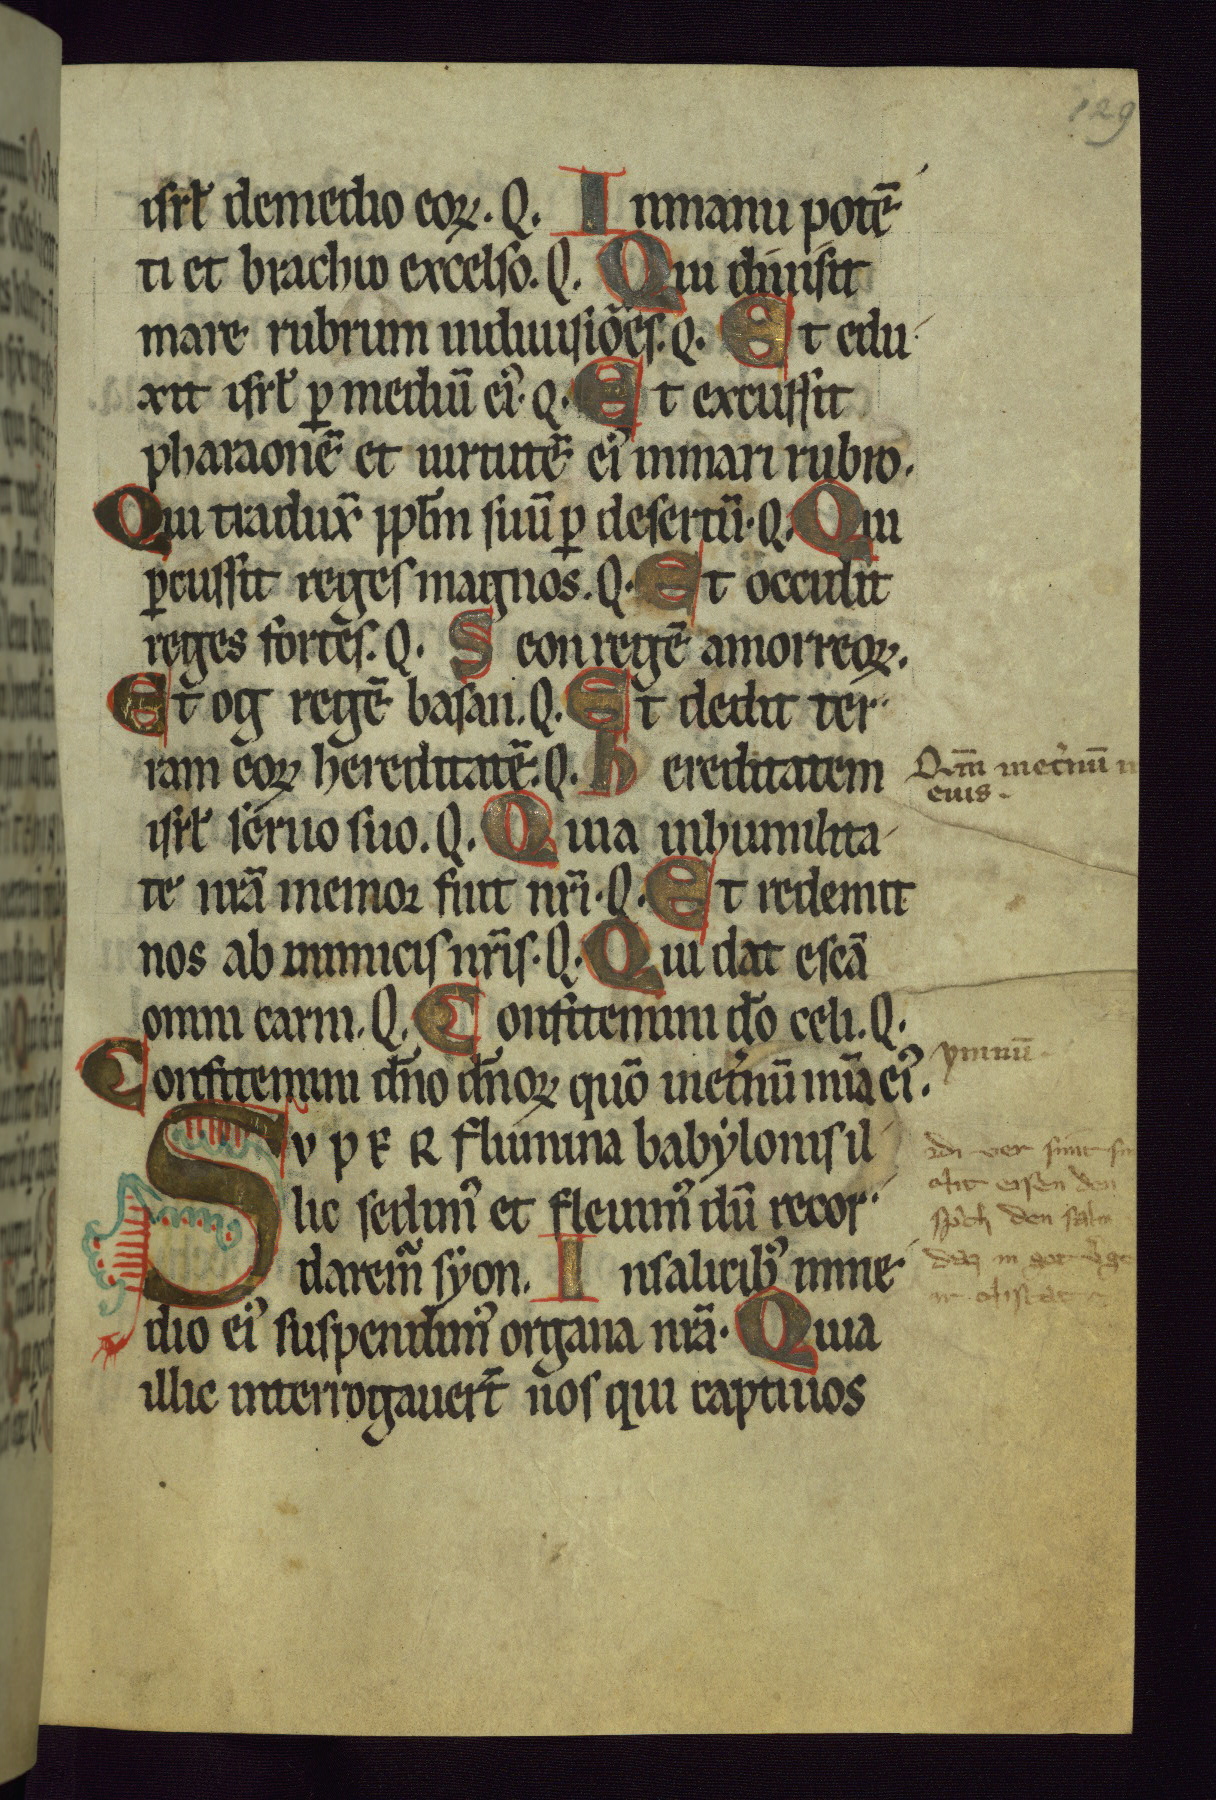 129
isrł demedio eoꝝ. Q. Inmanu potē
ti et brachio excelso. Q. Qui diuisit
mare rubrum indiuisiōes. Q. Et edu
xit isrł ꝑ mediū ei᷒. Q. Et excussit
pharaonē et uirtutē ei᷒ inmari rubro.
Qui tradux̄ ppl̄m suū ꝑ desertū. Q. Qui
ꝑcussit reges magnos. Q. Et occidit
reges fortes. Q. Seon regē amorreoꝝ.
Et og regē basan. Q. Et dedit ter
ram eoꝝ hereditatē. Q. Hereditatem
isrł seruo suo. Q. Quia inhumilita
te nr̄a memor fuit nr̄i. Q. Et redemit
nos ab inimicis nr̄is. Q. Qui dat escā
omni carni. Q. Confitemini dō celi. Q.
Confitemini dn̄o dn̄oꝝ quō inet̓nū mīa ei᷒.
SVPER flumina babylonis il
lic sedim᷒ et fleuim᷒ dū recor
darem̄ syon. Insalicib᷒ inme
dio ei᷒ suspendim᷒ organa nr̄a. Quia
illic interrogauer̄t nos qui captiuos
Qm̄ inet̓nū
eius.
ymnū